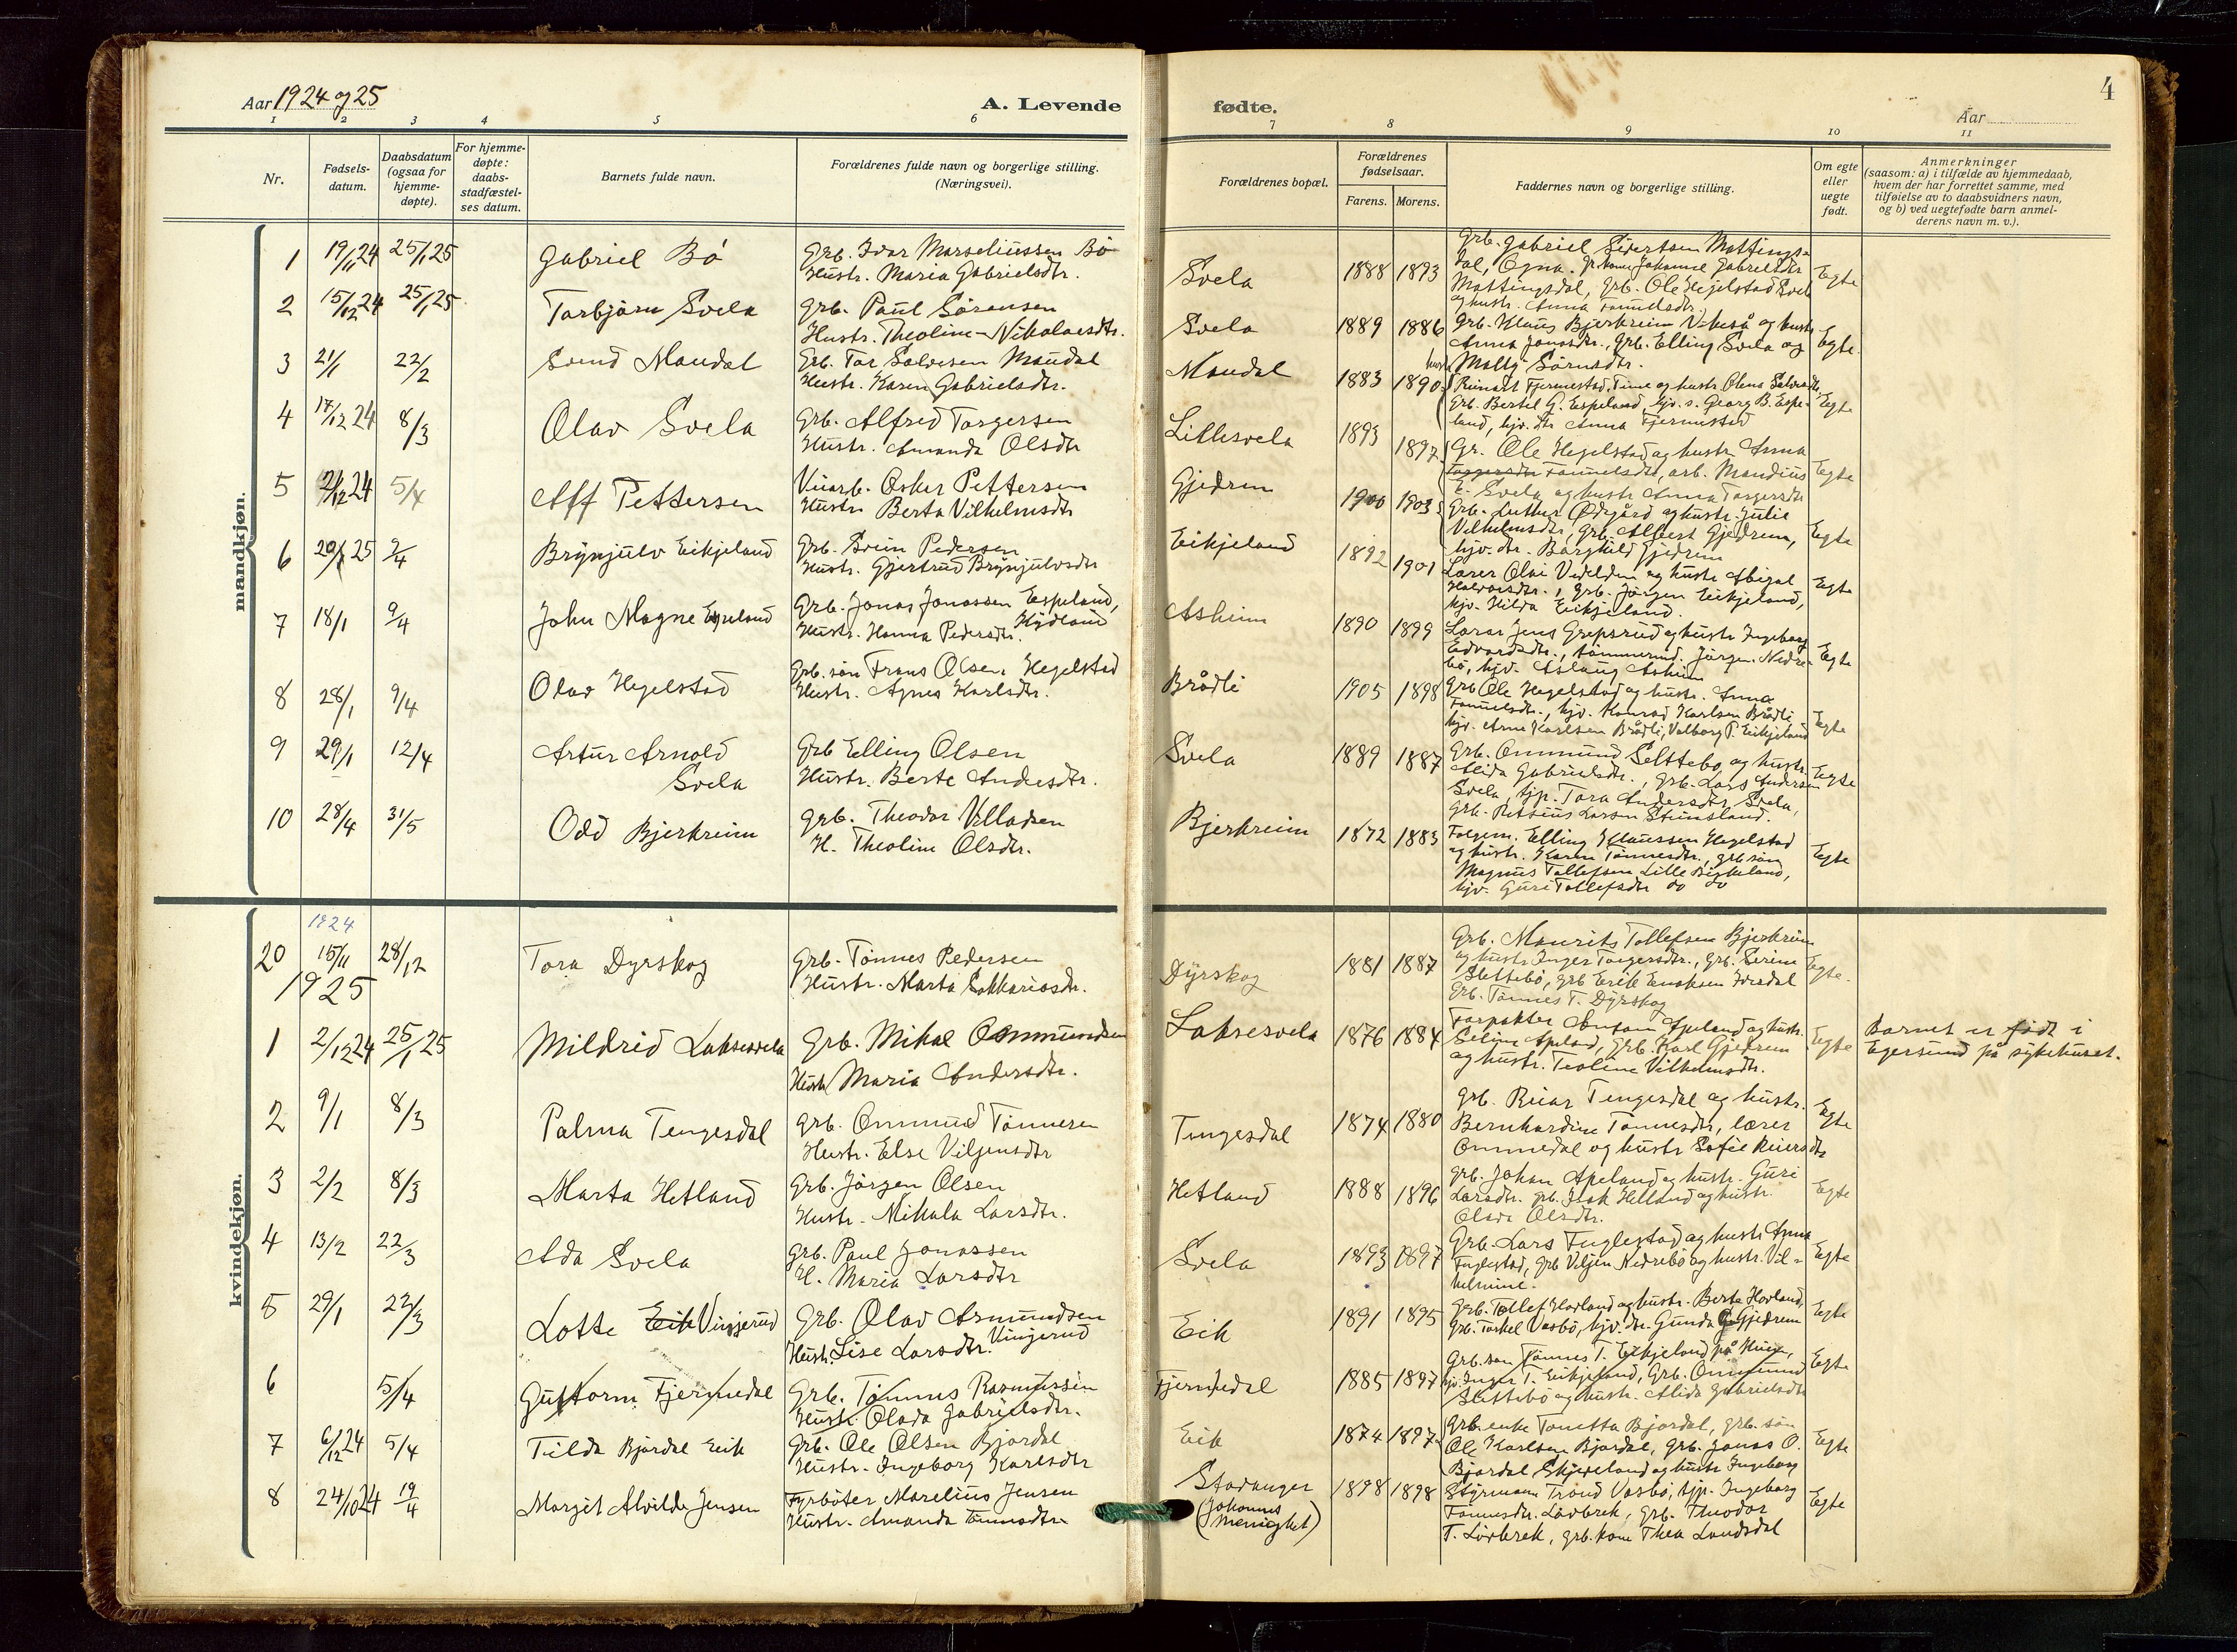 Aar 1924 og 25
A. Levende
fødte.
Aar
4
1 2 3 4 5 6
7 8 9 10 11
Nr.
Fødsels-
datum.
Daabsdatum
(ogsaa for
hjemme-
døpte).
For hjemme-
døpte:
daabs-
stadfæstel-
ses datum.
Barnets fulde navn.
Forældrenes fulde navn og borgerlige stilling.
(Næringsvei).
Forældrenes bopæl.
Forældrenes
fødselsaar.
Farens. Morens.
Faddernes navn og borgerlige stilling.
Om egte
eller
uegte
født.
Anmerkninger
(saasom: a) i tilfælde av hjemmedaab,
hvem der har forrettet samme, med
tilføielse av to daabsvidners navn,
og b) ved uegtefødte barn anmel-
derens navn m. v.).
mandkjøn.
1 19/11 24 25/1 25 Gabriel Bö
Grb. Ivar Marseliussen Bö
Hustr. Maria Gabrielsdtr.
Svela 1888 1893
Grb. Gabriel Sivertsen Mattings-
dal, Ogna. Johanne Gabrielsdtr
Mattingsdal, Grb. Ole Hegelstad Svela
og hustr. Anna Tønnelsdtr.
Egte
2 15/12 24 25/1 25 Torbjörn Svela
Grb. Paul Sörensen
Hustr. Theoline Nikolaisdtr.
Svela 1889 1886
Grb. Klaus Bjerkreim Vikeså og hustr
Anna Jonasdtr., Grb. Elling Svela og
hustr Mally Sörensdtr.
Egte
3 21/1 22/2 Svend Maudal
Grb. Tor Salvesen Maudal
Hustr. Karen Gabrielsdtr.
Maudal 1883 1890
Reinart Fjermestad, Time og hustr Olena Salvesdtr,
Grb. Bertel G. Espeland, hjv. s. Georg B. Espe-
land, hjv. dtr Anna Fjermestad
Egte
4 17/12 24 8/3 Olav Svela
Grb. Alfred Torgersen
Hustr. Amanda Olsdtr
Lillesvela 1893 1897
Gr. Ole Hegelstad og hustr Anna
Torgersdtr Tønnelsdtr, arb. Mandius
E. Svela og hustr Anna Torgersdtr
Egte
5 21/12 24 5/4 Alf Pettersen
Oskar Pettersen
Hustr Berta Vilhelmsdtr
Gjedrem 1900 1903
Grb. Luther Ödegård og hustr. Julie
Vilhelmsdtr, Grb. Albert Gjedrem,
hjv. dtr. Borghild Gjedrem
Egte
6 20/1 25 2/4 Brynjulv Eikjeland
Grb. Svein Pedersen
Hustr. Gjertrud Brynjulvsdtr
Eikjeland 1892 1901
Lærer Olai Vedeldn og hustr Abigal
Halvorsdtr., Grb. Jörgen Eikjeland,
hjv. Hilda Eikjeland.
Egte
7 18/1 9/4 John Magne Espeland
Grb. Jonas Jonassen Espeland,
Hustr. Hanna Pedersdtr.
Asheim 1890 1899
Lærer Jens Grepsrud og hustr Ingeborg
Edvardsdtr., tömmermd. Jörgen Nedre-
bö, hjv. Aslaug Asheim
Egte
8 28/1 9/4 Olav Hegelstad
Grb. sön Frans Olsen Hegelstad
Hustr. Agnes Karlsdtr.
Brådli 1905 1898
Grb Ole Hegelstad og hustr. Anna
Tønnelsdtr., hjv. Konrad Karlsen Brådli,
hjv. Arne Karlsen Brådli, Valborg P. Eikjeland
Egte
9 29/1 12/4 Artur Arnold
Svela
Grb Elling Olsen
Hustr. Berte Andersdtr.
Svela 1889 1887
Grb. Ommund Slettebö og hustr.
Alida Gabrielsdtr., Grb. Lars Andersen
Svela, tjp. Tora Andersdtr Svela,
Grb. Larsen Stensland.
Egte
10 28/4 31/5 Odd Bjerkreim
Grb. Theodor Villadsen
H. Theoline Olsdtr.
Bjerkreim 1872 1883
Elling Klaussen Hegelstad
og hustr. Karen Tönnesdtr., grb sön
Magnus Tollefsen Lille Birkeland,
hjv. Guri Tollefsdtr do do
Egte
kvindekjøn.
1924
20 15/11 28/12 Tora Dyrskog
Grb. Tönnes Pedersen
Hustr. Marta Sakkariasdtr.
Dyrskog 1881 1887
Grb. Maurits Tollefsen Bjerkreim
og hustr Inger Torgersdtr., Grb. Serine
Slettebö, Grb Erik Enoksen Ivesdal
Grb. Tönnes T. Dyrskog
Egte.
1925
1 2/12 24 25/1 25 Mildrid Laksesvela
Grb. Mikal Ommundsen
Hustr Maria Andersdtr.
Laksesvela 1876 1884
Forpakter Apeland og hustr.
Seline Apeland, Grb. Karl Gjedrem
og hustr. Teoline Vilhelmsdtr.
Egte
Barnet er födt i
Egersund på sykehuset.
2 9/1 8/3 Palma Tengesdal
Grb. Ommund Tönnesen
Hustr. Else Viljensdtr
Tengesdal 1874 1880
Grb. Reiar Tengesdal og hustr.
Bernhardine Tönnesdtr, lærer
Ommedal og hustr Sofie Reiersdtr
Egte
3 2/2 8/3 Marta Hetland
Grb. Jörgen Olsen
Hustr. Mikala Larsdtr.
Hetland 1888 1896
Grb. Johan Apeland og hustr. Guri
Larsdtr. Grb. Isak Hetland og hustr.
Olsdtr.
Egte
4 13/2 22/3 Ada Svela
Grb. Paul Jonassen
H. Maria Larsdtr
Svela 1893 1897
Grb. Lars Fuglestad og hustr Anna
Fuglestad, Grb Viljen Nedrebö og hustr. Vil-
helmine.
Egte
5 29/1 22/3 Lotte Eik Vinjerud
Grb. Olav Asmundsen
Hustr. Lise Larsdtr. Vinjerud
Eik 1891 1895
Grb. Tollef Hovland og hustr. Berte Hovland,
Grb. Torkel Vasbö, hjv. dtr. Gunda Gjedrem
Egte
6 5/4 Guttorm Fjermedal
Grb. Tönnes Rasmussen
Hustr. Olada Gabrielsdtr.
Fjermedal 1885 1897
Grb. sön Tönnes T. Eikjeland på
hjv. Inger T. Eikjeland, Grb. Ommund
Slettebö og hustr. Alida Gabrielsdtr
Egte
7 6/12 24 5/4 Tilda Bjordal Eik
Grb. Ole Olsen Bjordal
Hustr. Ingeborg Karlsdtr
Eik 1874 1897
Grb. enke Tonetta Bjordal, grb. sön
Ole Karlsen Bjordal, Grb. Jonas O.
Bjordal Skjeveland og hustr Ingeborg
Egte
8 24/10 24 19/4 Margit Alvilde Jensen
Fyrböter Marelius Jensen
Hustr. Amanda Tönnesdtr
Stavanger
(Johannes
menighet)
1898 1898
Styrmann Trond Vasbö, tjp. Ingeborg
Tönnesdtr. Lövbrek, Grb. Theodor
T. Lövbrek, grb. kone Thea Landsdal
Egte